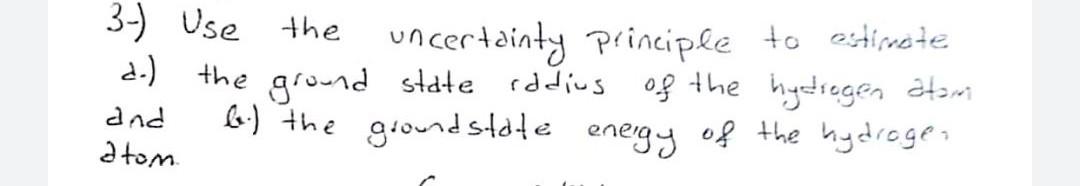 3-) Use the uncertainty principle to estimate
a.) the ground state raddius of the hydrogen atom
and b.) the groundstate energy of the hydrogen
atom.